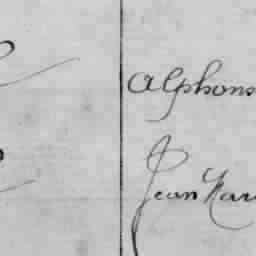 Alphons
Jean Mari